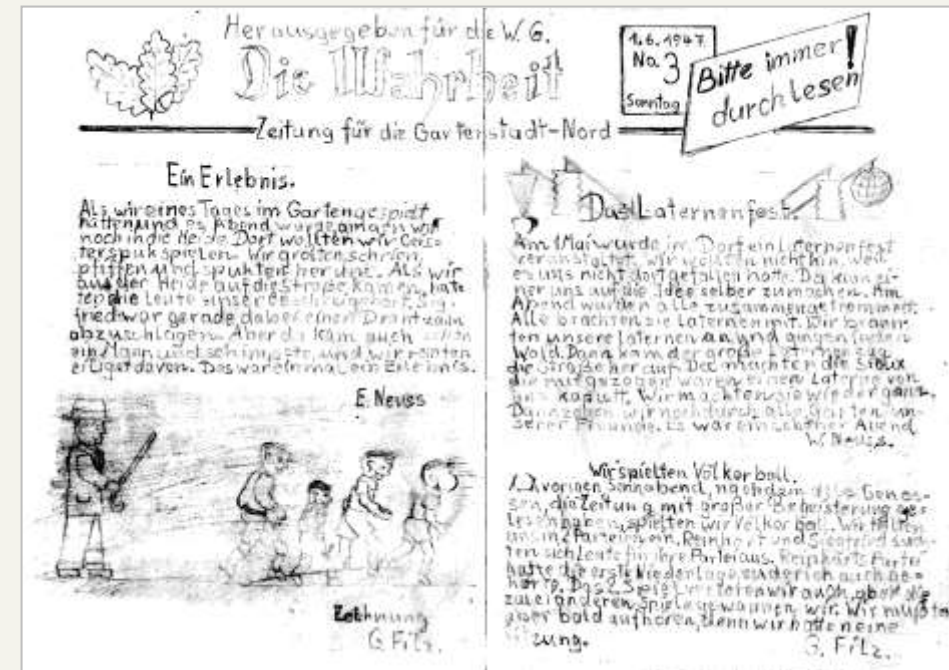 Herausgegeben für die W. G.
Die Wahrheit
1.6.1947.
No. 3
Sonntag
Bitte immer!
durchlesen
Zeitung für die Gartenstadt-Nord
Ein Erlebnis.
Als wir eines Tages im Garten gespielt
hatten und es Abend wurde wir
noch in die Heide Dort wollten wir Geis-
terspuk spielen. Wir grölten, schrien,
pfiffen und spukten herum. Als wir
aus der Heide auf die Straße kamen, hat-
ten die Leute unser gehört. Sig-
fried war gerade dabei einen Drahtzaun
abzuschlagen. Aber da kam auch schon
ein Mann und schimpfte, und wir rannten
eiligst davon. Das war einmal ein Erlebnis.
E. Neuss
Zeichnung
G. Filz.
Das Laternenfest.
Am 1 Mai wurde im Dorf ein Laternenfest
veranstaltet. Wir wollten nicht hin, weil
es uns nicht dort gefallen hatte. Da kam ei-
ner uns auf die Idee selber zu machen. Am
Abend wurden alle zusammengetrommelt.
Alle brachten sie Laternen mit. Wir brann-
ten unsere Laternen an und gingen in den
Wald. Dann kam der große
die Straße herauf. Da machten die Sioux
die mitgezogen waren einen Laterne von
uns kaputt. Wir machten sie wieder ganz.
Dann zogen wir noch durch alle Gärten un-
serer Freunde. Es war ein schöner Abend
W. Neuss.
Wir spielten Völkerball.
vorigen Sonnabend, nachdem alle Genos-
sen, die Zeitung mit großer Begeisterung ge-
lesen haben, spielten wir Völkerball. Wir teilten
uns in 2 Parteien ein. Reinhart und Siegfried such-
ten sich Leute für ihre Partei aus. Reinharts Partei
hatte die erste Niederlage zu der ich auch ge-
hörte. Das 2. Spiel verloren wir auch, aber die
zwei anderen Spiele gewannen wir. Wir mußten
aber bald aufhören, denn wir hatten eine
G. Filz.